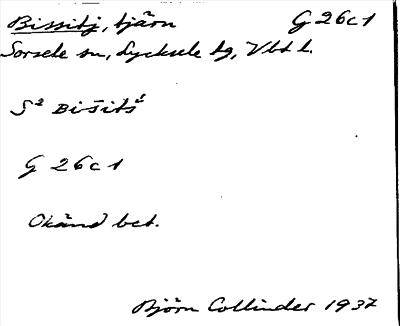 Bissitj, tjärn G 26c1
Sorsele sn, Lycksele tg, Vbt l.
S² Bišitš
G 26c1
Okänd bet.
Björn Collinder 1937